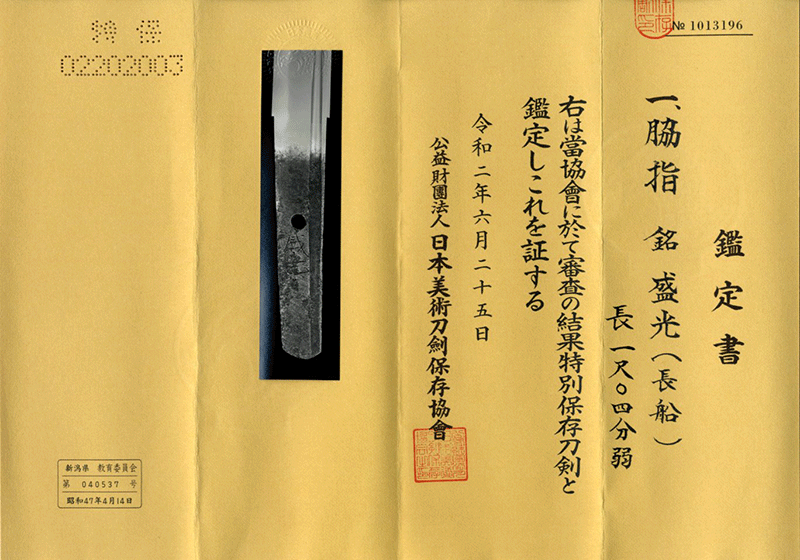 № 1013196
鑑定書
一、脇指 銘 盛光(長船)
長一尺〇四分弱
右は當協會に於て審査の結果特別保存刀剣と
鑑定しこれを証する
令和二年六月二十五日
公益財團法人 日本美術刀劍保存協會
特保
02202003
新潟県 教育委員会
第 040537 号
昭和47年4月14日